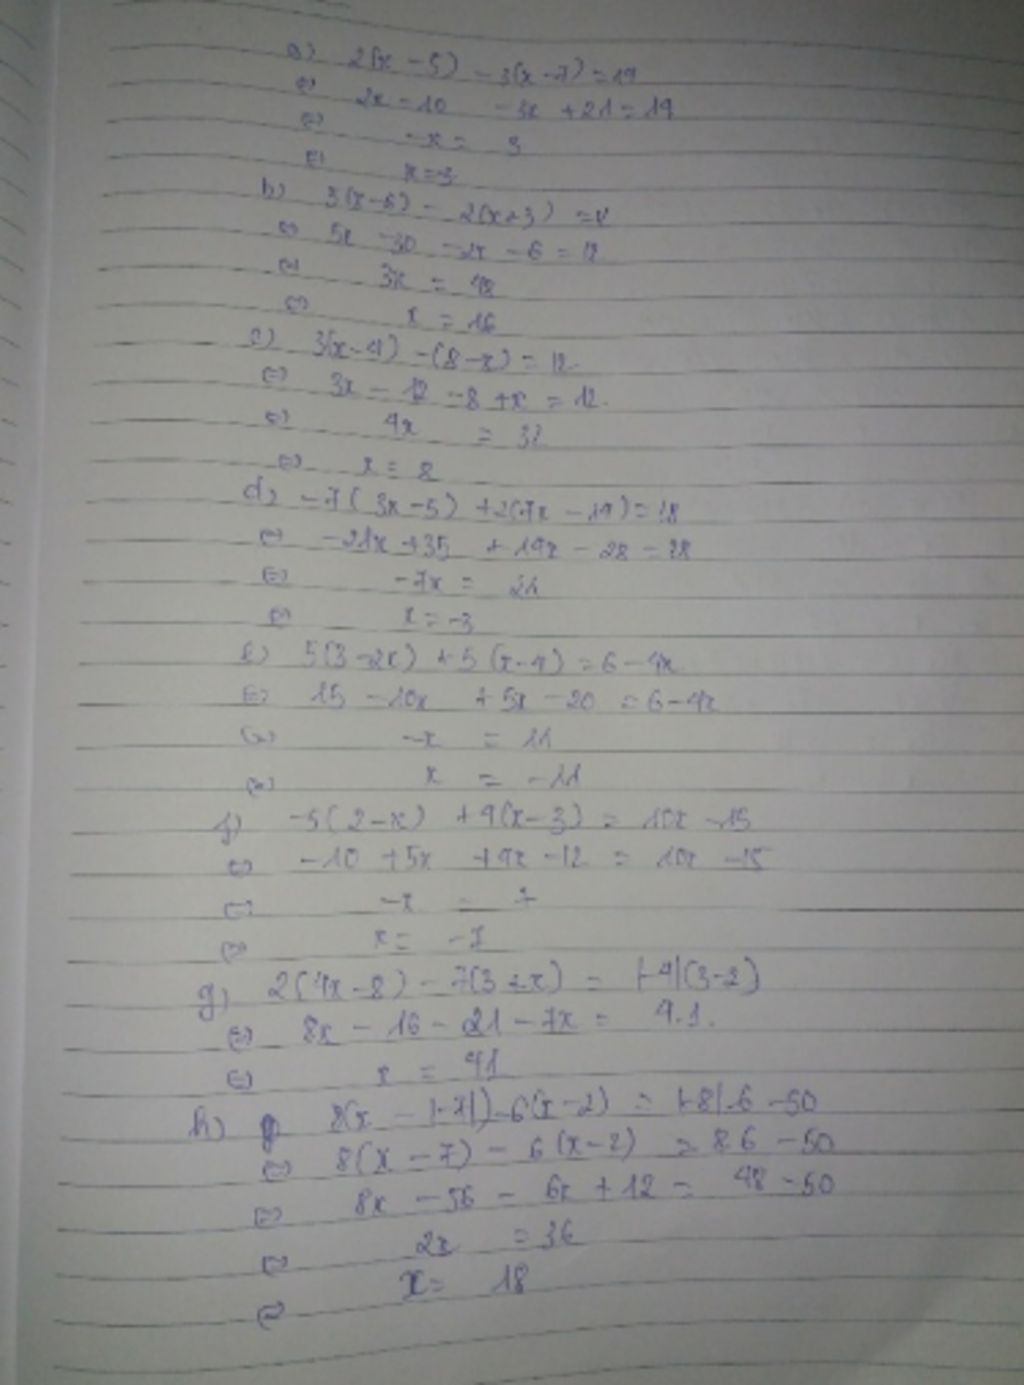 a) 2(x - 5) - 3(x - 7) = 14
⇔ 2x - 10 - 3x + 21 = 14
⇔ -x = 3
⇔ x = -3
b) 5(x-6) - 2(x+3) = 12
⇔ 5x - 30 - 2x - 6 = 12
⇔ 3x = 48
⇔ x = 16
c) 3(x-4) - (8-x) = 12
⇔ 3x - 12 - 8 + x = 12
⇔ 4x = 32
⇔ x = 8
d) -7(3x-5) + 2(7x - 14) = 28
⇔ -21x + 35 + 14x - 28 = 28
⇔ -7x = 21
⇔ x = -3
e) 5(3-2x) + 5(x-4) = 6-4x
⇔ 15 - 10x + 5x - 20 = 6-4x
⇔ -x = 11
⇔ x = -11
f) -5(2-x) + 4(x-3) = 10x - 15
⇔ -10 + 5x + 4x - 12 = 10x - 15
⇔ -x = 7
⇔ x = -7
g) 2(4x-8) - 7(3+x) = |-4|(3-2)
⇔ 8x - 16 - 21 - 7x = 4.1.
⇔ x = 41
h) 8(x - |-7|) - 6(x-2) = |-8|.6 - 50
⇔ 8(x - 7) - 6(x-2) = 8.6 - 50
⇔ 8x - 56 - 6x + 12 = 48 - 50
⇔ 2x = 36
⇔ x = 18